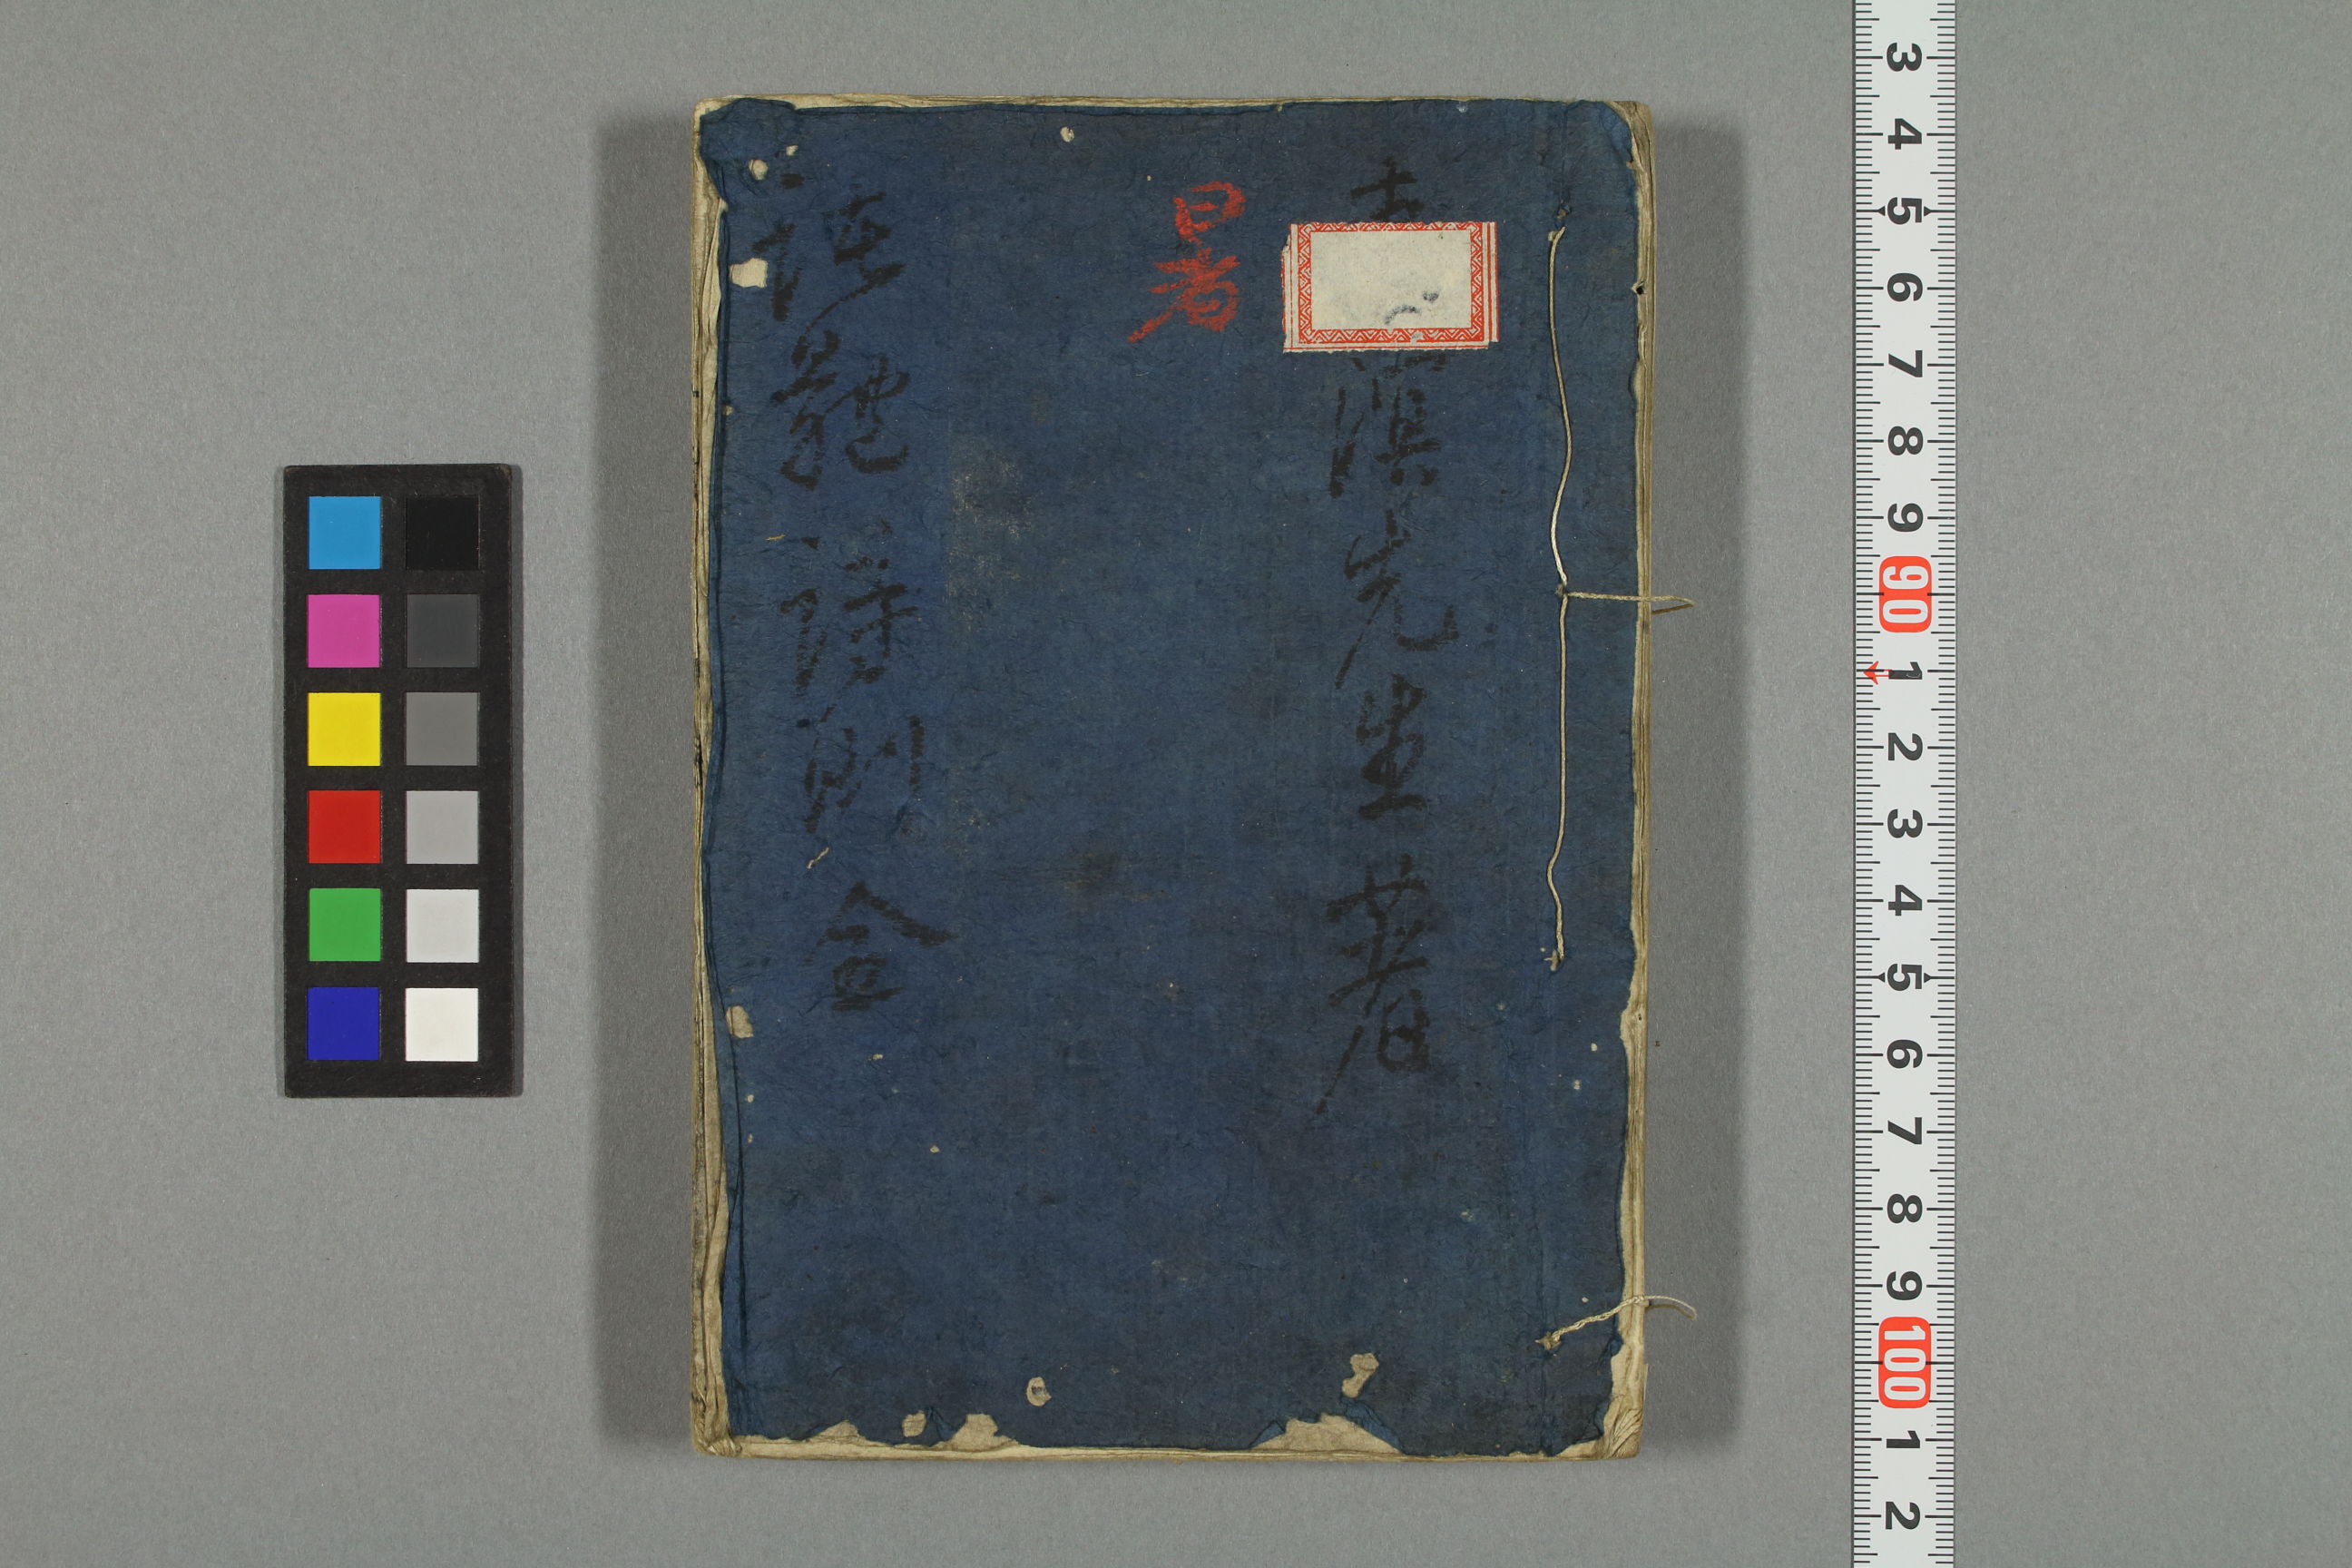 溟先生著
暑
諸體詩則 合
3 4 5 6 7 8 9 90 1 2 3 4 5 6 7 8 9 100 1 2